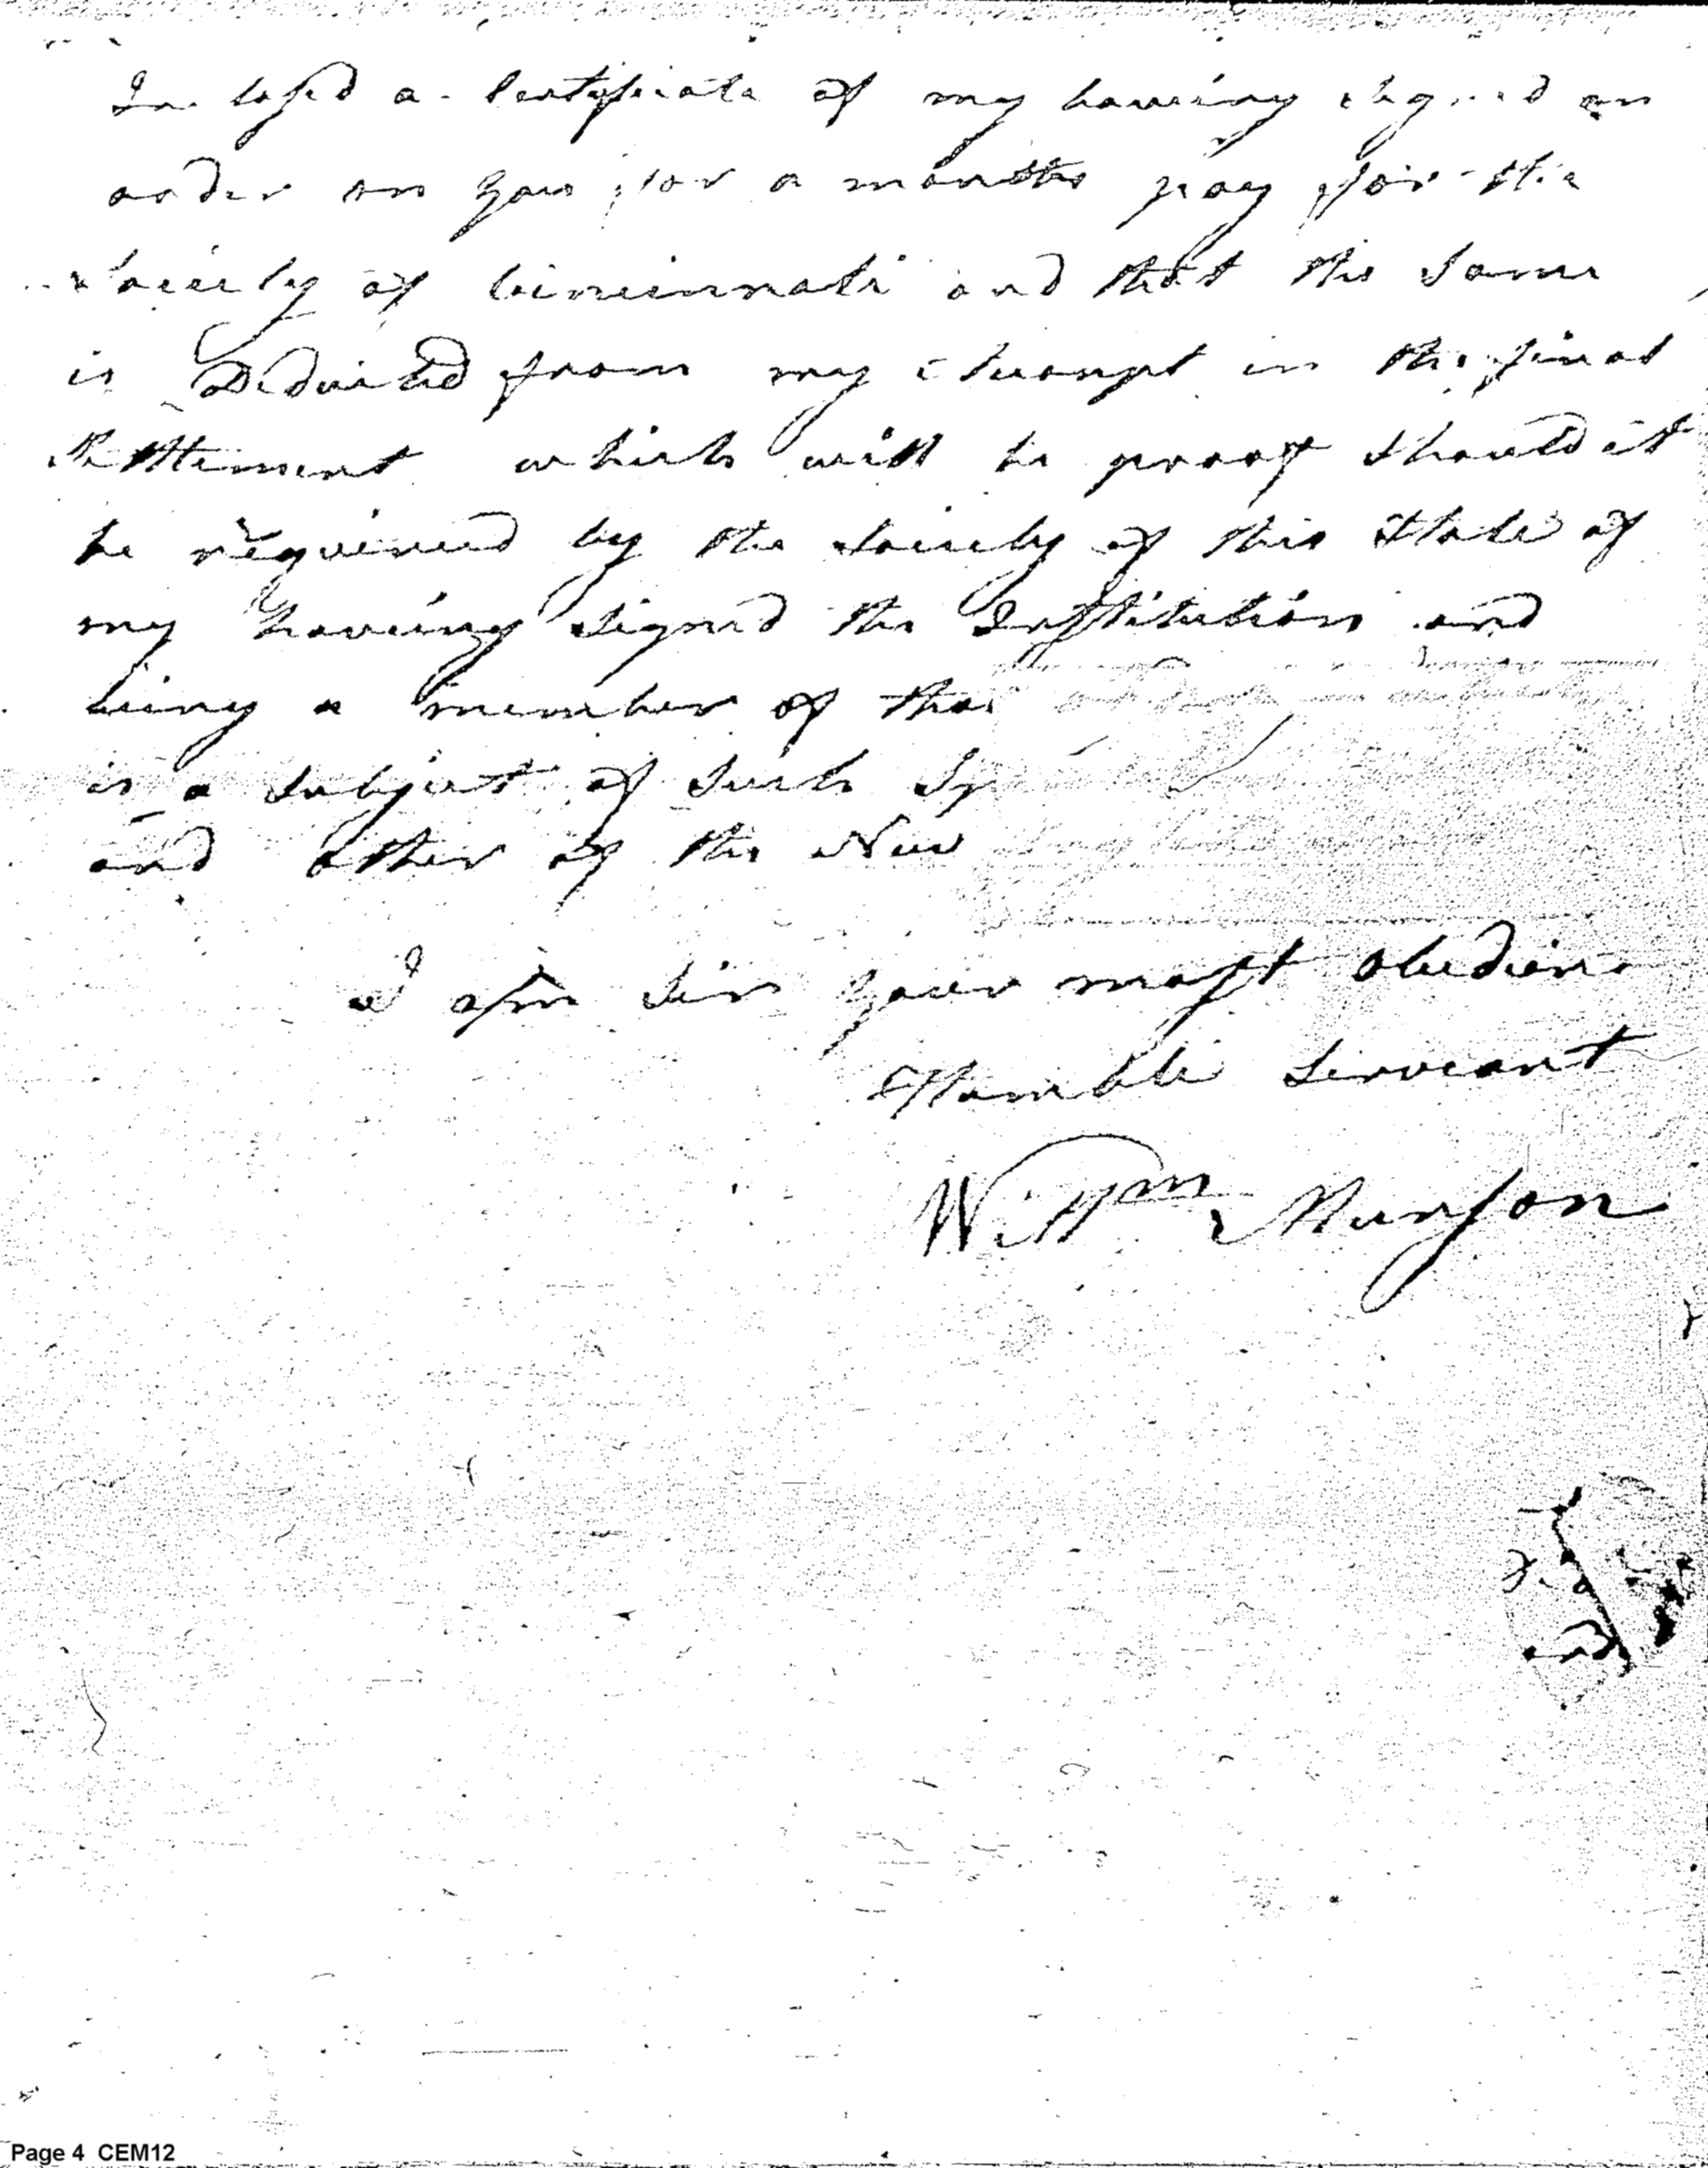 In losed a Certificate of my haveing signed an
order on you for a months pay for the
Society of Cincinnati and that the same
is Deducted from my in the final
Settlement which will be proof should it
be requiered by the Society of this State of
my haveing signed the Institution and
being a member of
is a subject of such
and other of the New
I am Sir your most obedien
Humble Serveant
Willm Munson
Page 4 CEM12